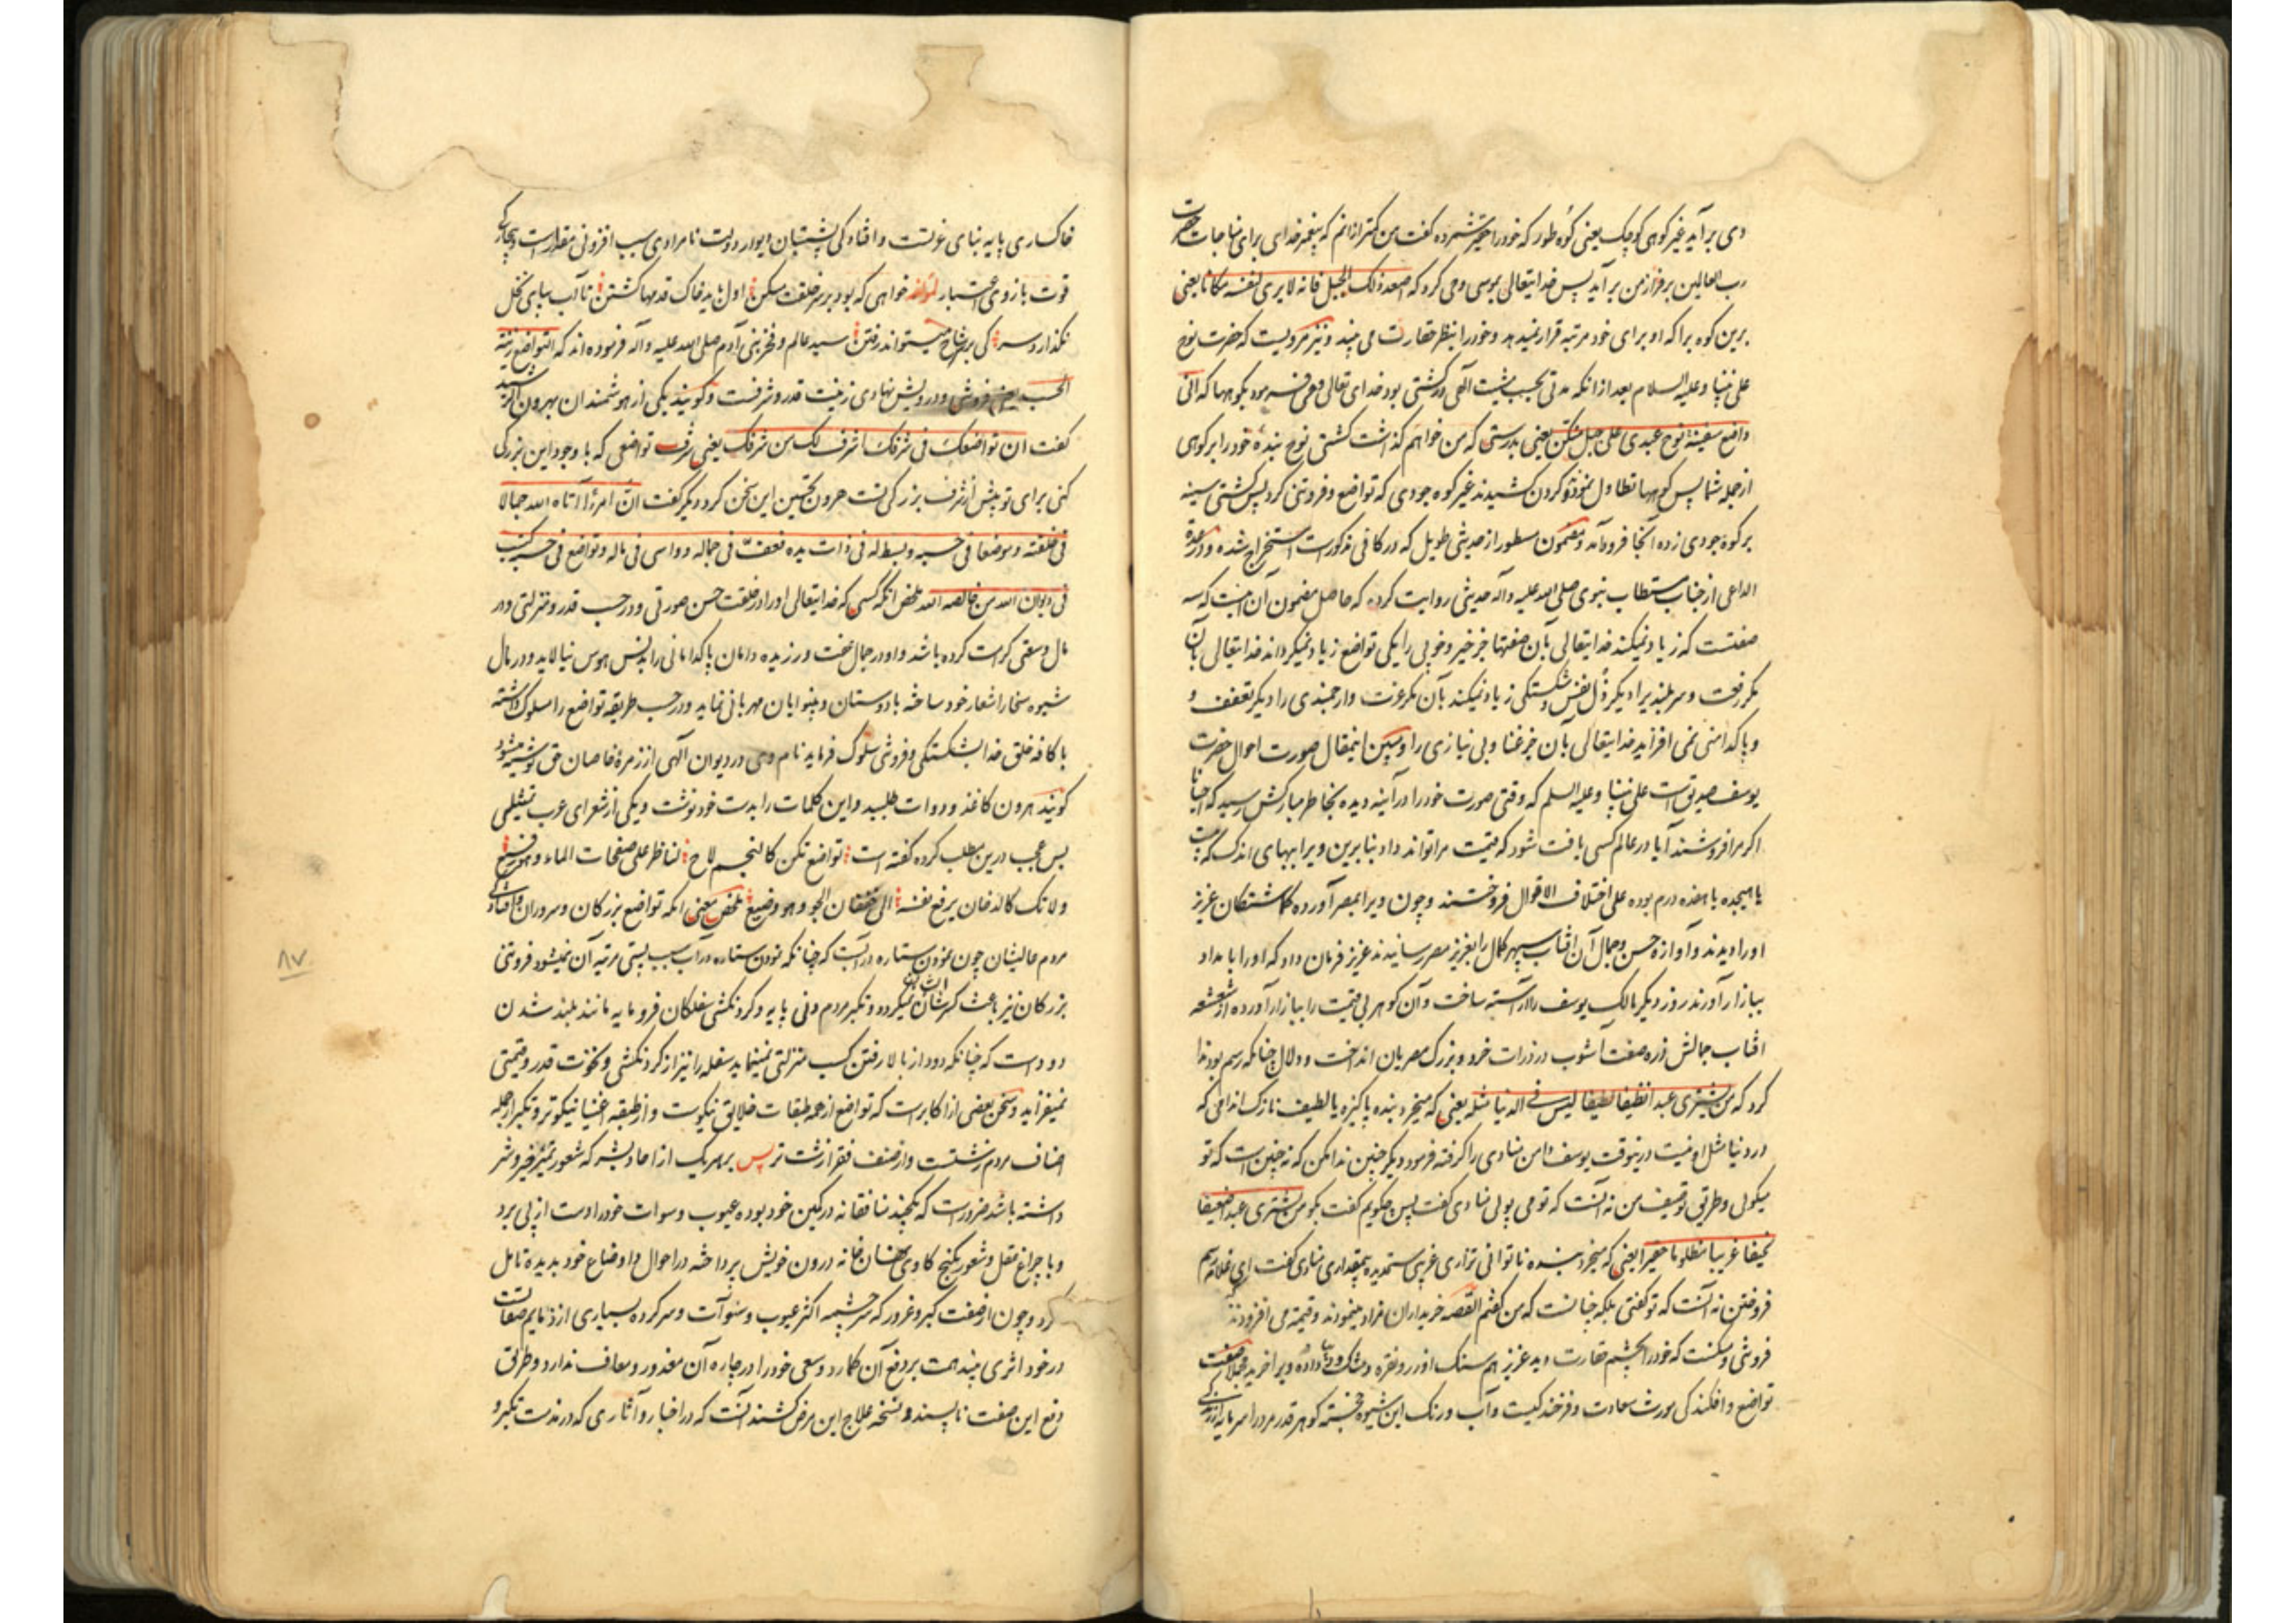 وی برآید غیر کوهی کوچک یعنی کوه طور که خود را حقیر شمرده گفت من کمتر از آنم که پیغمبر خدای برای مناجات حضرت
رب العالمین بر فراز من برآید پس خدایتعالی بموسی وحی کرد که اصعد ذلک الجبل فانه لا یری لنفسه مکانا یعنی
برین کوه برا که او برای خود مرتبه قرار نمیدهد و خود را بنظر حقارت می بیند و نیز مرویست که حضرت نوح
علی نبینا و علیه السلام بعد از آنکه مدتی بحسب مشیت الهی در کشتی بود خدای تعالی وحی فرمود بکوهها که انی
واضع سفینة نوح عبدی علی جبل منکن یعنی بدرستی که من خواهم گذاشت کشتی نوح بنده خود را بر کوهی
از جمله شما پس کوهها تطاول نموده گردن کشیدند غیر کوه جودی که تواضع و فروتنی کرد پس کشتی سینه
بر کوه جودی زده آنجا فرود آمد و مضمون مسطور از حدیثی طویل که در کافی مذکورست استخراج شده و در عدة
الداعی از جناب مستطاب نبوی صلی الله علیه و آله حدیثی روایت کرده که حاصل مضمون آن اینست که سه
صفتست که زیاد نمیکند خدایتعالی بآن صفتها جز خیر و خوبی را یکی تواضع زیاد نمیگرداند خدایتعالی بآن
مگر رفعت و سربلندی را دیگر ذل نفس و شکستگی زیاد نمیکند بآن مگر عزت و ارجمندی را دیگر تعفف و
و پاکدامنی نمی افزاید خدایتعالی بآن جز غنا و بی نیازی را و مبین اینمقال صورت احوال حضرت
یوسف صدیق است علی نبینا و علیه السلم که وقتی صورت خود را در آینه دیده بخاطر مبارکش رسید که احیانا
اگر مرا فروشند آیا در عالم کسی یافت شود که قیمت مرا تواند داد بنابرین ویرا ببهای اندک که بیست
یا هیجده یا هفده درم بوده علی اختلاف الاقوال فروختند و چون ویرا بمصر آوردند گماشتگان عزیز
او را دیدند و آوازه حسن و جمال آن آفتاب سپهر کمال را بعزیز مصر رسانیدند عزیز فرمان داد که او را بامداد
ببازار آورند روز دیگر مالک یوسف را آراسته ساخت و آن گوهر بی قیمت را ببازار آورده از شعشعه
آفتاب جمالش ذره صفت آشوب در ذرات خرد و بزرگ مصریان انداخت و دلال چنانکه رسم بود ندا
کرد که من یشتری عبدا نظیفا لطیفا لیس فی الدنیا مثله یعنی که میخرد بنده پاکیزه یا لطیف نازک اندامی که
در دنیا مثل او نیست درینوقت یوسف دامن منادی را گرفته فرمود دیگر چنین ندا مکن که نه چنین است که تو
میگوئی و طریق توصیف من نه آنست که تو می پوئی منادی گفت پس چگویم گفت بگو من یشتری عبدا ضعیفا
نحیفا غریبا مظلوما حقیرا یعنی که میخرد بنده ناتوانی نزاری غریبی ستمدیده بیمقداری منادی گفت ای غلام رسم
فروختن نه آنست که تو گفتی بلکه چنانست که من گفتم القصه خریداران مزاد مینمودند و قیمت می افزودند
فروتنی و مسکنت که خود را بچشم حقارت دید عزیز هم سنگ او زر و نقره و مشک و دیبا داده ویرا خرید مجملا صفت
تواضع و افکندگی مورث سعادت و فرخندگیست و آب و رنگ این شیوه خجسته گوهر قدر مرد را سرمایه ارزندگی
خاکساری پایه بنای عزتست و افتادگی پشتیبان دیوار دولت نامرادی سبب افزونی مقدارست و بیچارگی
قوت بازوی اعتبار لمؤلفه خواهی که بود بر سر خلقت مسکن اول باید خاک قدمها گشتن تا آب بپای نخل
نگذارد سر کی بر سر شاخ میتواند رفتن سید عالم و فخر بنی آدم صلی الله علیه و آله فرموده اند که التواضع زینة
الحسب یعنی فروتنی و درویش نهادی زینت قدر و شرفست و گویند یکی از هوشمندان بهرون الرشید
گفت ان تواضعک فی شرفک اشرف لک من شرفک یعنی شرف تواضعی که با وجود این بزرگی
کنی برای تو بیش از شرف بزرگی تست هرون تحسین این سخن کرد دیگر گفت ان امرءا آتاه الله جمالا
فی خلقته و موضعا فی حسبه و بسط له فی ذات یده فعف فی جماله و واسی فی ماله و تواضع فی حسبه کتب
فی دیوان الله من خالصه الله ملخص آنکه کسی که خدایتعالی او را در خلقت حسن صورتی و در حسب قدر و منزلتی و در
مال وسعتی کرامت کرده باشد و او در جمال عفت ورزیده دامان پاکدامانی را بدنس هوس نیالاید و در مال
شیوه سخا را شعار خود ساخته با دوستان و بینوایان مهربانی نماید و در حسب طریقه تواضع را مسلوک داشته
با کافه خلق خدا بشکستگی و فروتنی سلوک فرماید نام وی در دیوان الهی از زمرة خاصان حق نوشته میشود
گویند هرون کاغذ و دوات طلبید و این کلمات را بدست خود نوشت و یکی از شعرای عرب تمثیلی
بس عجب درین مطلب کرده گفته است تواضع تکن کالنجم لاح لناظر علی صفحات الماء و هو رفیع
و لا تک کالدخان یرفع نفسه الی طبقات الجو و هو وضیع ملخص یعنی آنکه تواضع بزرگان و سروران و افتادگی
مردم عالیشان چون نمودن ستاره در آبست که چنانکه نمودن ستاره در آب سبب پستی مرتبه آن نمیشود فروتنی
بزرگان نیز باعث کسر شان ایشان نمیگردد و تکبر مردم دنی پایه و گردنکشی سفلگان فرومایه مانند بلند شدن
دودست که چنانکه دود از بالا رفتن کسب منزلتی نمینماید سفله را نیز از گردنکشی و نخوت قدر و قیمتی
نمیفزاید و سخن بعضی از اکابرست که تواضع از همه طبقات خلایق نیکوست و از طبقه اغنیا نیکوتر و تکبر از جمله
اصناف مردم زشتست و از صنف فقرا زشت تر پس بر هر یک از آحاد بشر که شعور تمیز خیر و شر
داشته باشد ضرورست که یکچند منافقانه در کمین خود بوده عیوب و سوآت خود را دست از پی برد
و با چراغ عقل و شعور بکنج کاوی نهان خانه درون خویش پرداخته در احوال و اوضاع خود بدیده تامل
نگرد و چون از صفت کبر و غرور که سرچشمه اکثر عیوب و سوآت و سرکرده بسیاری از ذمایم صفات است
در خود اثری بیند همت بر دفع آن گمارد و سعی خود را در چاره آن معذور و معاف ندارد و طریق
دفع این صفت ناپسند و نسخه علاج این مرض کشنده آنست که در اخبار و آثاری که در مذمت تکبر و
۸۷